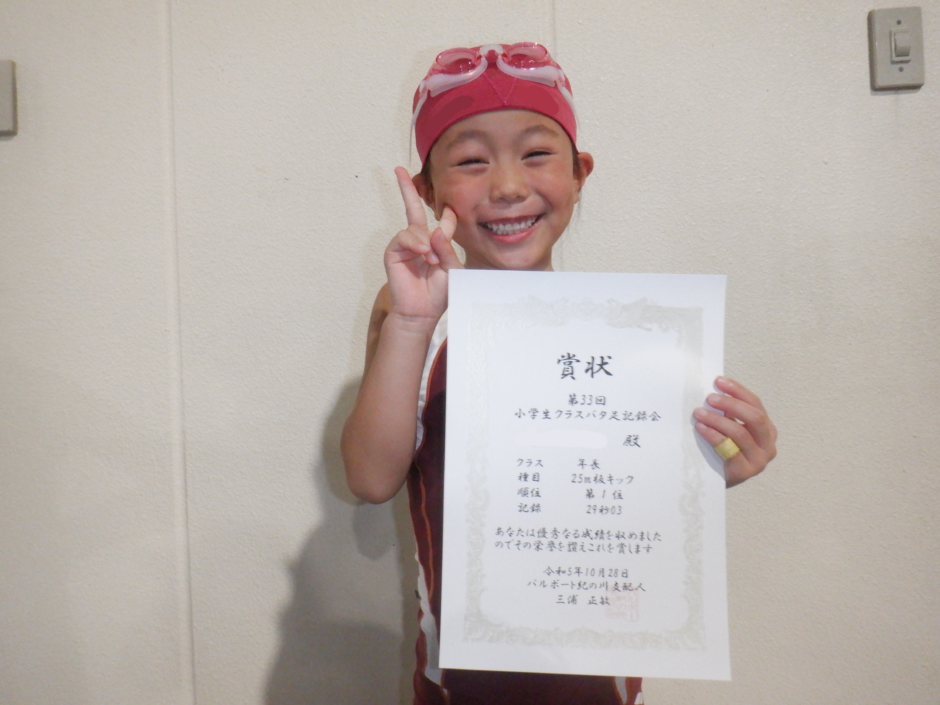 賞状
第33回
小学生クラスバタ足記録会
殿
クラス 年長
種目 25m板キック
順位 第1位
記録 29秒03
あなたは優秀なる成績を収めました
のでその栄誉を讃えこれを賞します
令和5年10月28日
パルポート紀の川支配人
三浦 正敏